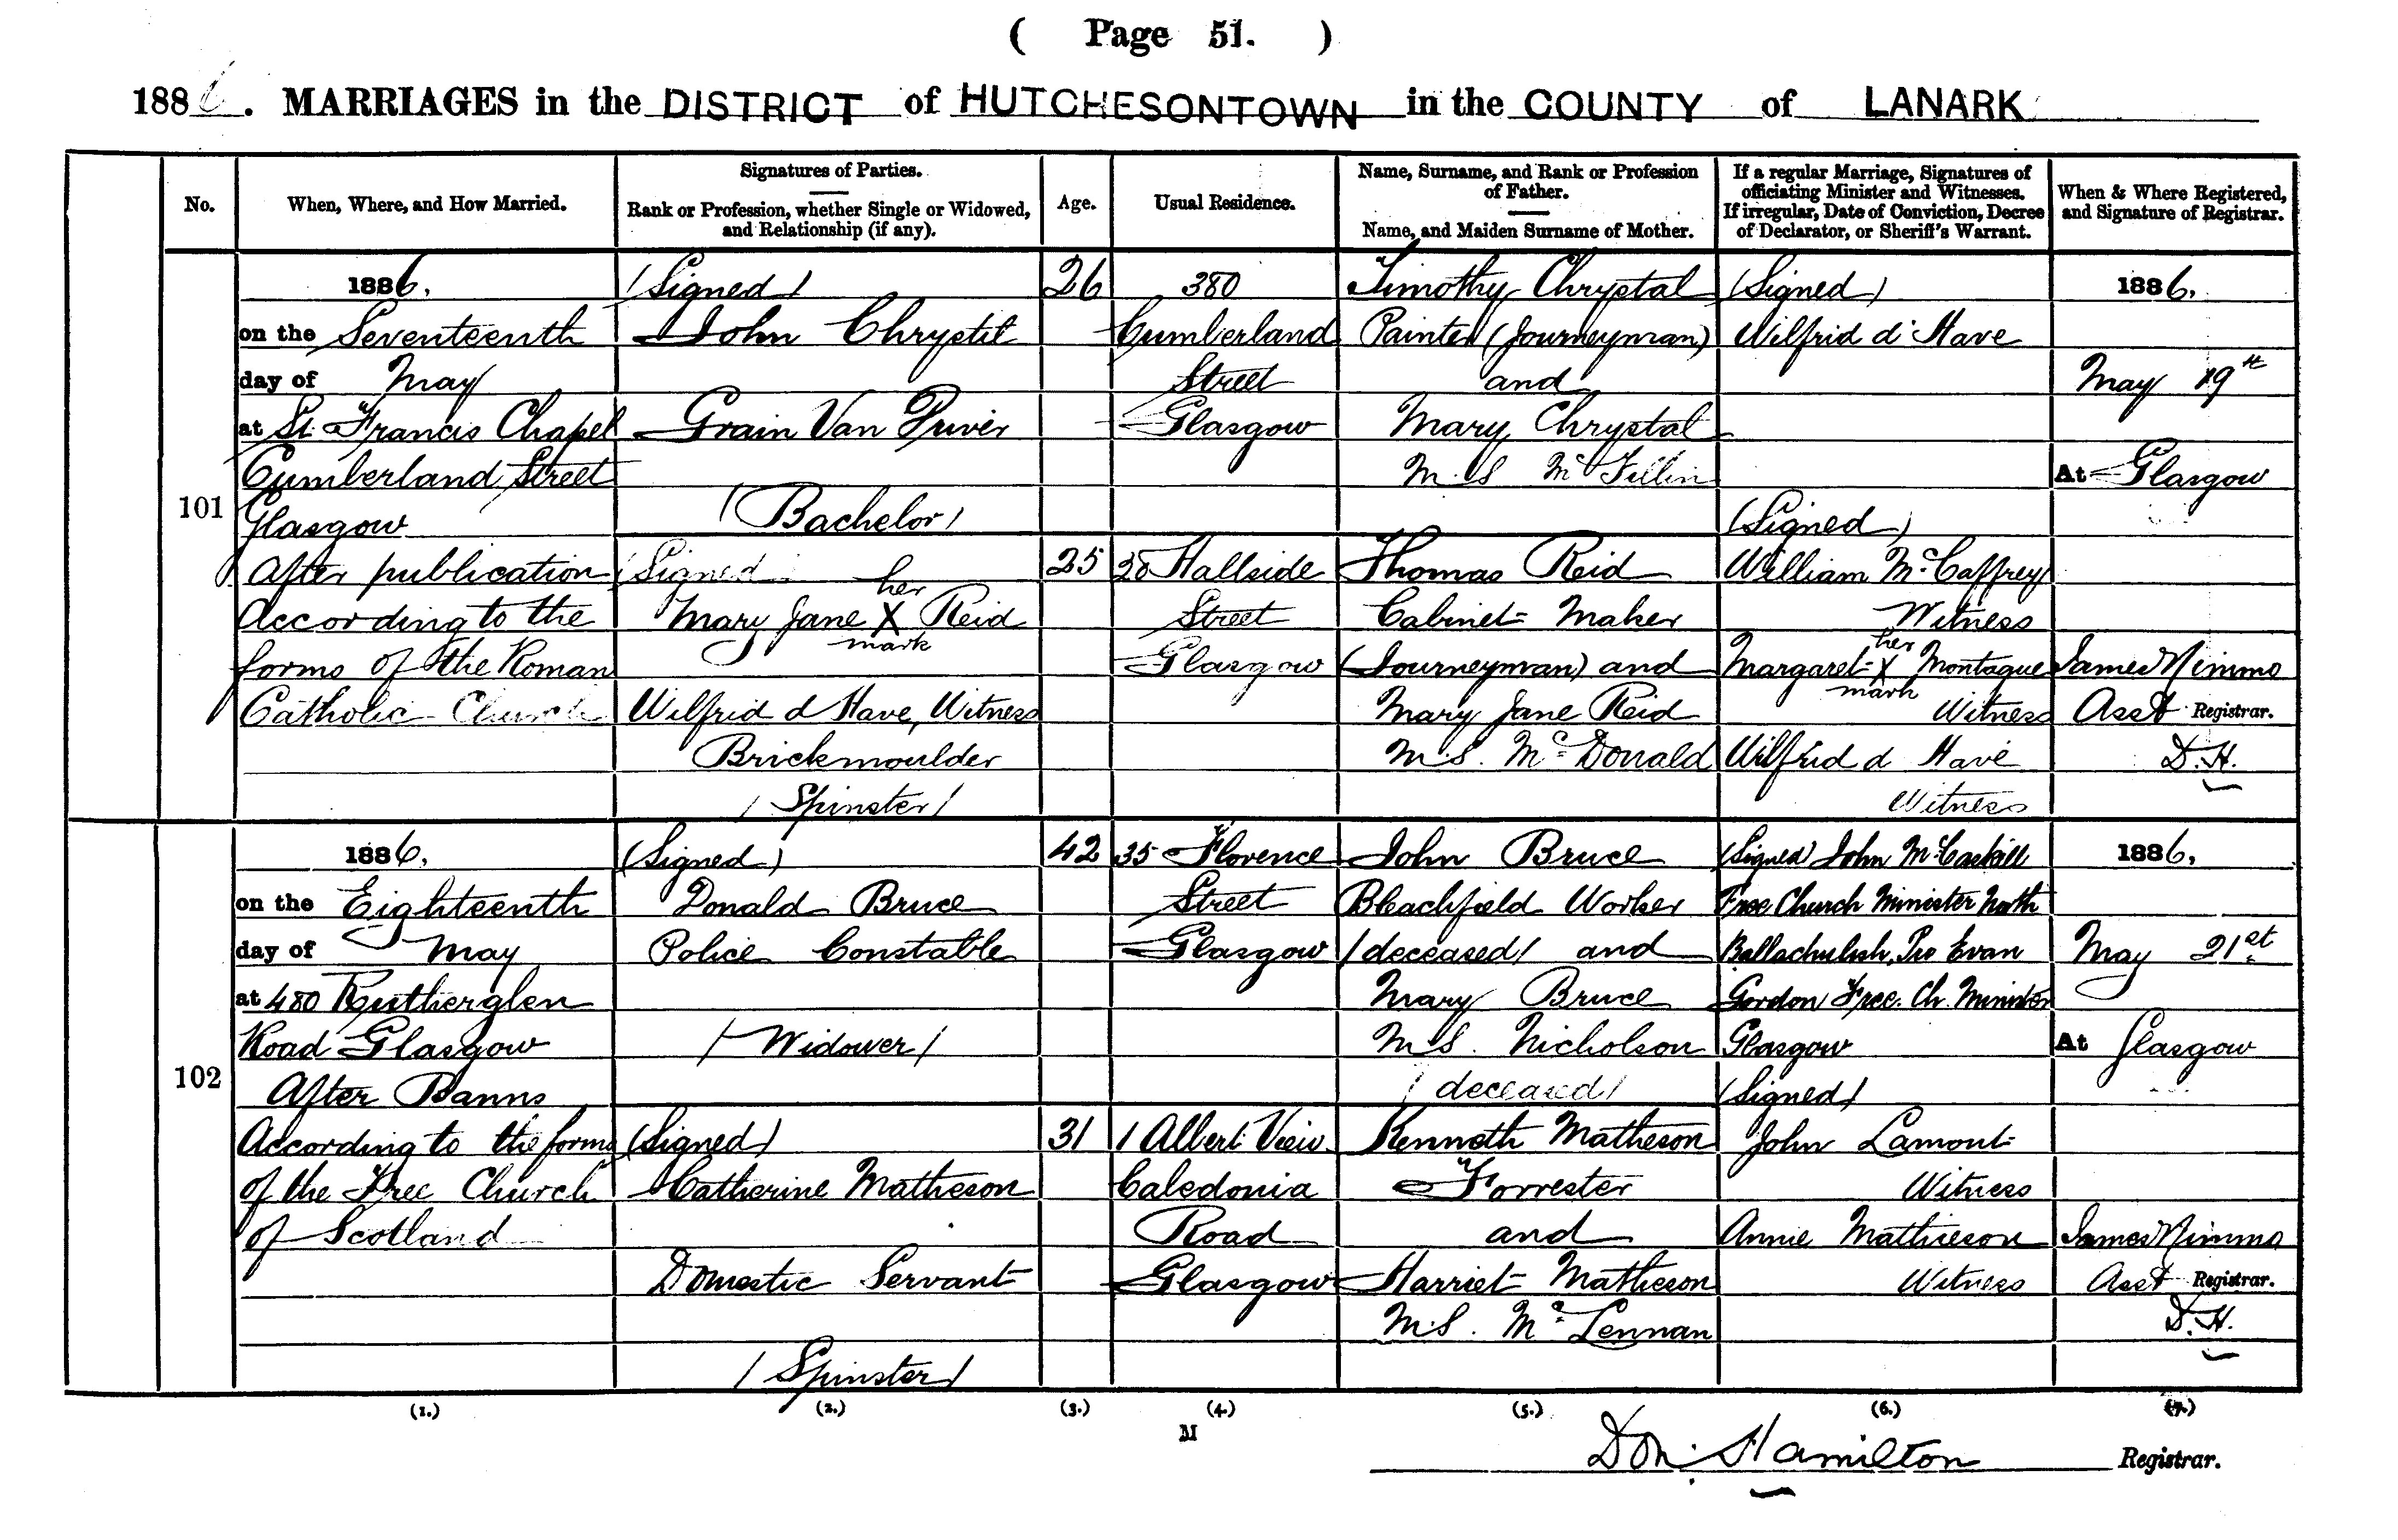 ( Page 51. )
1886. MARRIAGES in the DISTRICT of HUTCHESONTOWN in the COUNTY of LANARK
No.
When, Where, and How Married.
Signatures of Parties.
Rank or Profession, whether Single or Widowed,
and Relationship (if any).
Age.
Usual Residence.
Name, Surname, and Rank or Profession
of Father.
Name, and Maiden Surname of Mother.
If a regular Marriage, Signatures of
officiating Minister and Witnesses.
If irregular, Date of Conviction, Decree
of Declarator, or Sheriff's Warrant.
When & Where Registered,
and Signature of Registrar.
101
1886,
on the Seventeenth
day of May
at St. Francis Chapel
Cumberland Street
Glasgow
After publication
According to the
forms of the Roman
Catholic Church
(Signed)
John Chrystil
Grain Van Puiver
(Bachelor)
(Signed
her
Mary Jane X Reid
mark
Wilfrid d Have, Witness
Brickmoulder
(Spinster)
26
25
380
Cumberland
Street
Glasgow
28 Hallside
Street
Glasgow
Timothy Chrystal
Painter (Journeyman)
and
Mary Chrystal
M.S. McFillin
Thomas Reid
Cabinet Maker
(Journeyman) and
Mary Jane Reid
M.S. McDonald
(Signed)
Wilfrid d'Have
(Signed)
William McCaffrey
Witness
her
Margaret X Montague
mark
Witness
Wilfrid d Have
Witness
1886,
May 19th
At Glasgow
James Nimmo
Asst Registrar.
D.H.
102
1886,
on the Eighteenth
day of May
at 480 Rutherglen
Road Glasgow
After Banns
According to the forms
of the Free Church
of Scotland
(Signed)
Donald Bruce
Police Constable
(Widower)
(Signed)
Catherine Matheson
Domestic Servant
(Spinster)
42
31
35 Florence
Street
Glasgow
1 Albert View
Caledonia
Road
Glasgow
John Bruce
Bleachfield Worker
(deceased) and
Mary Bruce
M.S. Nicholson
(deceased)
Kenneth Matheson
Forrester
and
Harriet Matheson
M.S. McLennan
(Signed) John McCaskill
Free Church Minister North
Ballachulish, Pro Evan
Gordon Free. Ch. Minister
Glasgow
(Signed)
John Lamont
Witness
Annie Mathieson
Witness
1886,
May 21st
At Glasgow
James Nimmo
Asst Registrar.
D.H.
(1.) (2.) (3.) (4.) (5.) (6.) (7.)
M
Don. Hamilton Registrar.